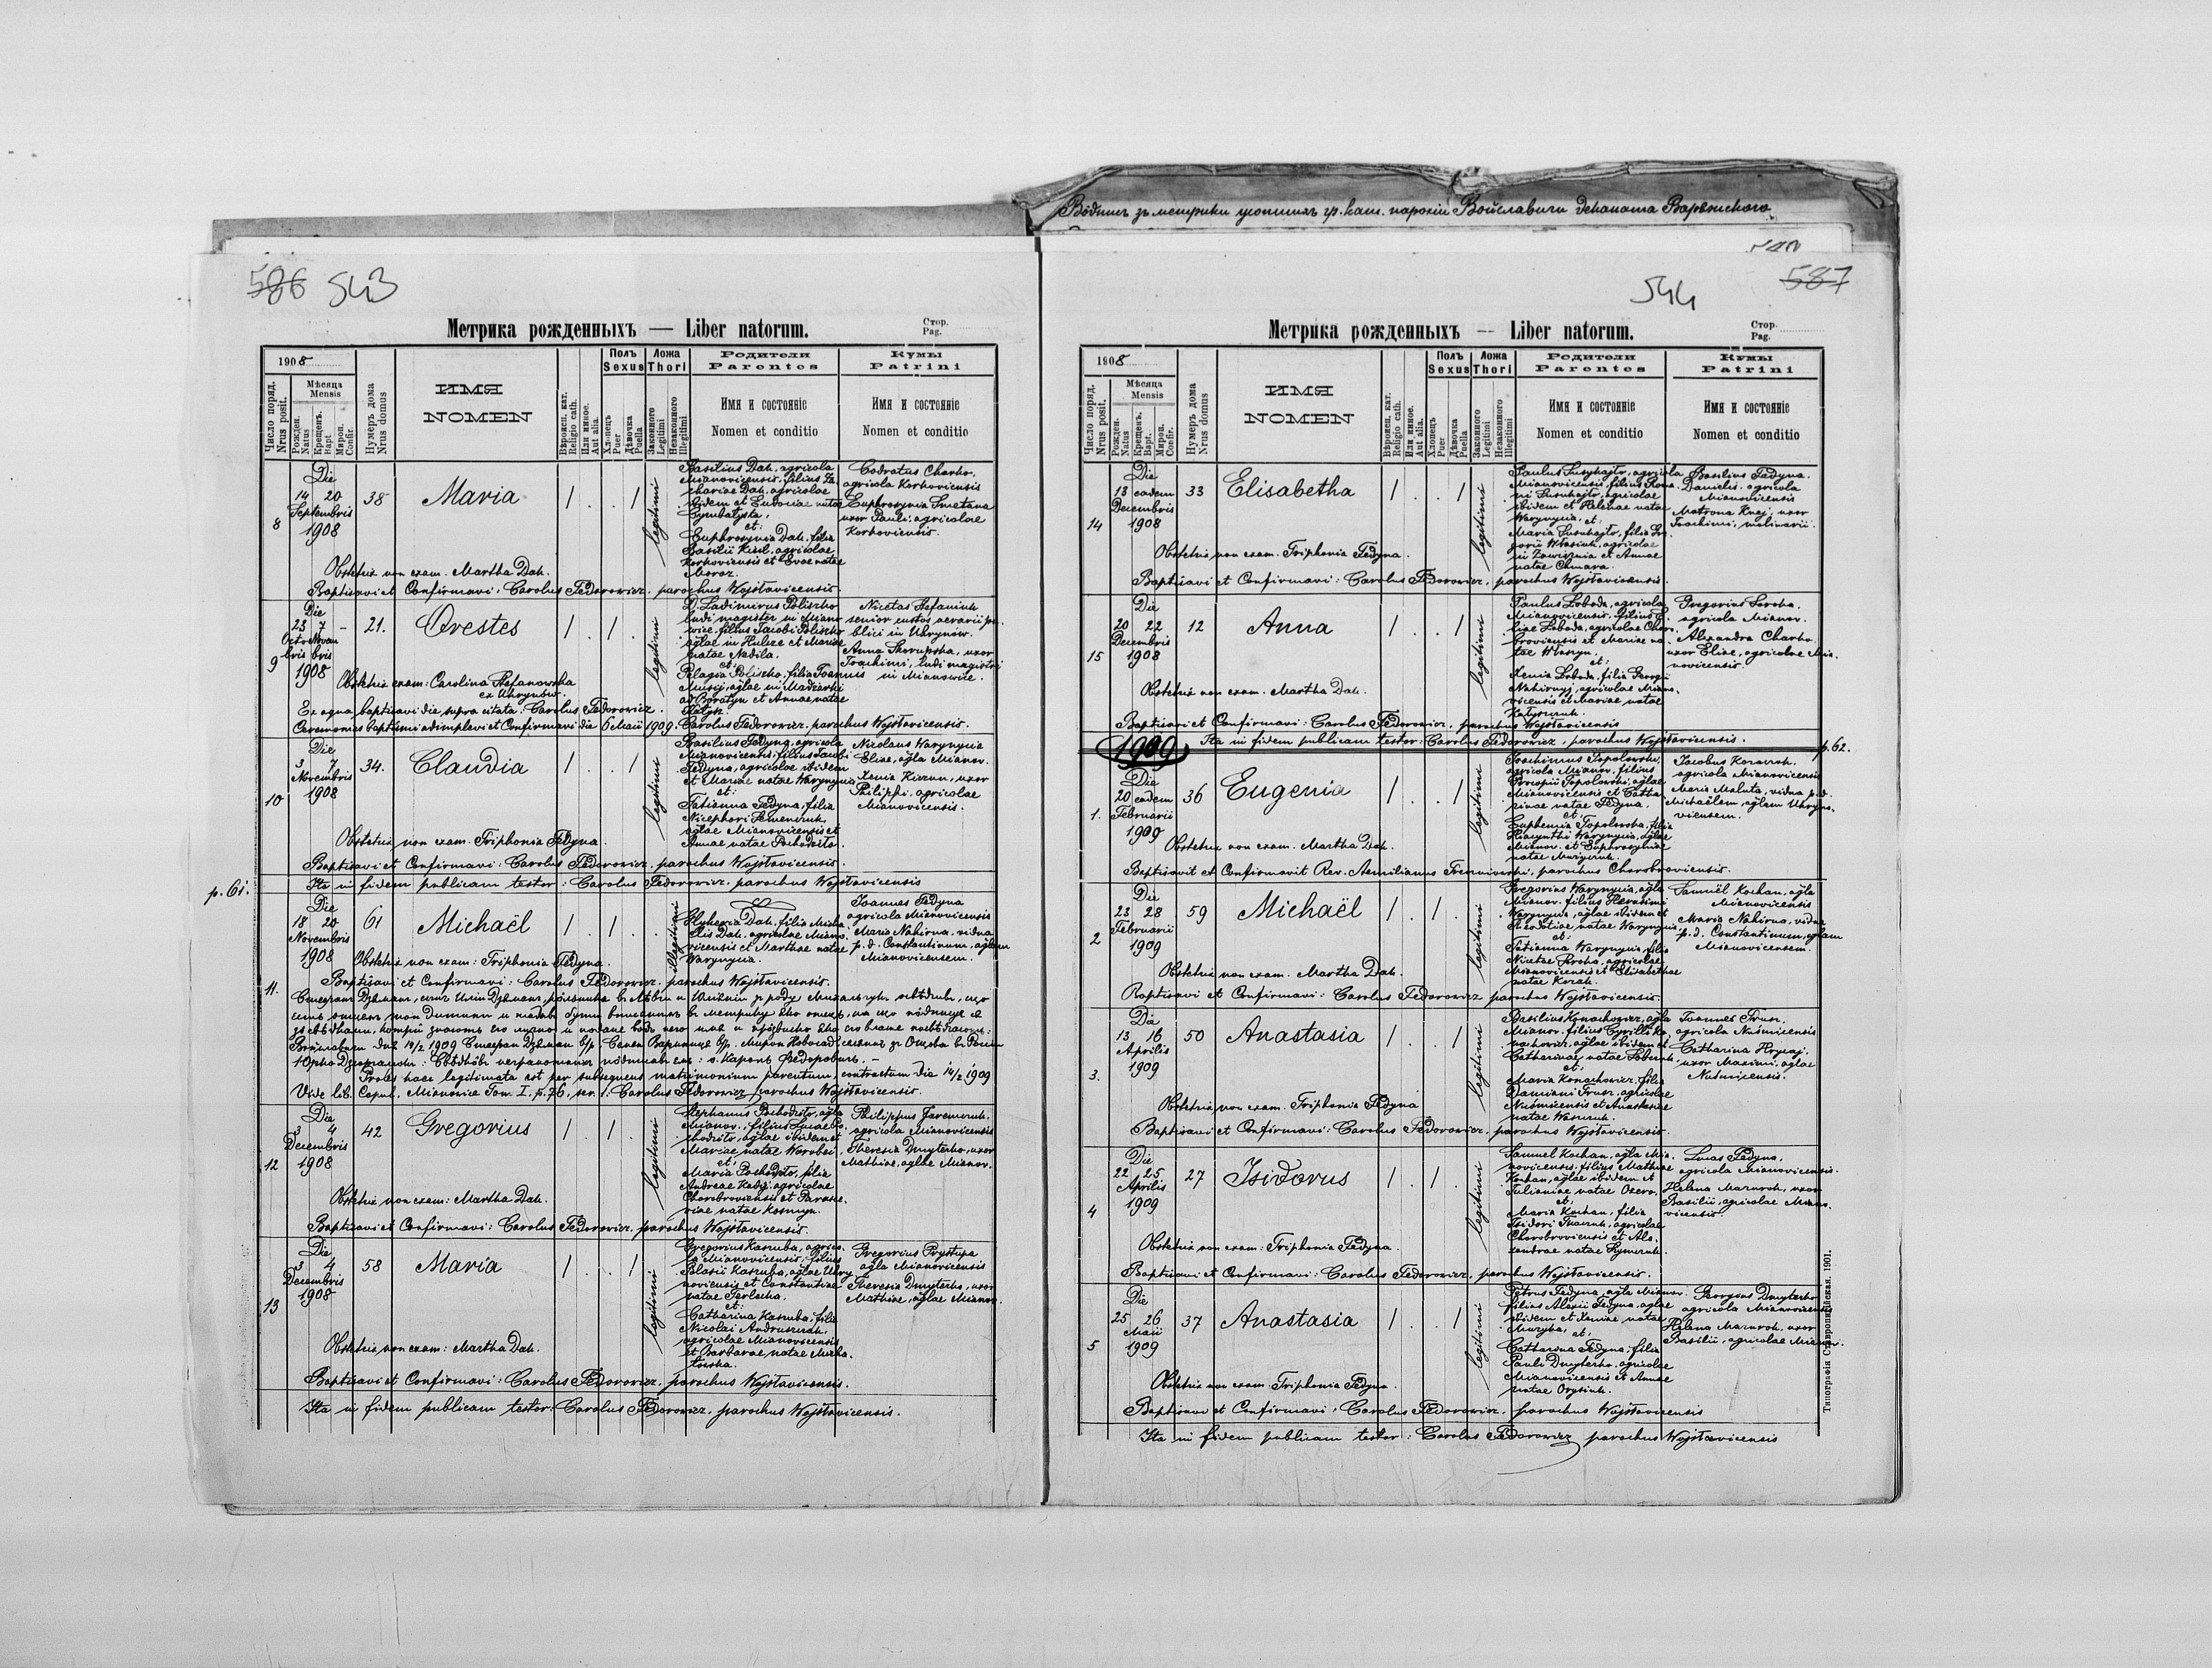 Вôдпись зъ метрики усопшихъ гр. кат. парохіи Войславичи деканата Варяжского
586 543
Метрика рожденныхъ — Liber natorum.
Стор.
Pag.
1908
Число поряд.
Nrus posit.
Мѣсяца
Mensis
Рожден.
Natus
Крещенъ.
Bapt.
Мироп.
Confir.
Нумеръ дома
Nrus domus
ИМЯ
NOMEN
Вѣроисп. кат.
Religio cath.
Или иное.
Aut alia.
Полъ
Sexus
Хлопецъ
Puer
Дѣвочка
Puella
Ложа
Thori
Законного
Legitimi
Незаконного
Illegitimi
Родители
Parentes
Имя и состояніе
Nomen et conditio
Кумы
Patrini
Имя и состояніе
Nomen et conditio
8
Die
14 20
Septembris
1908
38
Maria
1 . . 1
legitimi
Basilius Dah, agricola
Mianovicensis, filius Za
chariae Dah, agricolae
ibidem et Eudociae natae
Cymbalysta,
et:
Euphrosynia Dah, filia
Basilii Kisil, agricolae
Korkoviensis et Evae natae
Moroz.
Codratus Charko,
agricola Korkoviensis
Euphrosynia Smetana
uxor Pauli, agricolae
Korkoviensis.
Obstetrix non exam. Martha Dah.
Baptisavi et Confirmavi: Carolus Fedorowicz, parochus Wojsławicensis.
9
Die
23 7 –
Octo Novem
bris bris
1908
21.
Orestes
1 . 1 .
legitimi
D. Ladimirus Poliszko
ludi magister in Miano
wice, filius Jacobi Poliszko
aglae in Hulcze et Mariae
natae Nedila.
et:
Pelagia Poliszko, filia Joannis
Musij, aglae in Madziarki
ad Boratyn et Annae, natae
Nicetas Stefaniuk
senior custos aerarii pu
blici in Uhrynów.
Anna Skorupska, uxor
Joachimi, ludi magistri
in Mianowice.
Obstetrix exam: Carolina Stefanowska
ex Uhrynów.
Ex aqua baptisavi die supra citata: Carolus Fedorowicz.
Ceremonias baptismi adimplevi et Confirmavi die 6 Maii 1909. Carolus Fedorowicz, parochus Wojsławicensis.
10
Die
3 7
Novembris
1908
34.
Claudia
1 . . 1
legitimi
Basilius Fedyna, agricola
Mianovicensis, filius Jacobi
Fedyna, agricolae ibidem
et Mariae natae Warynycia
et:
Tatianna Fedyna, filia
Nicephori Semeniuk
aglae Mianovicensis et
Annae natae Pochodiło.
Nicolaus Warynycia
Eliae, agla Mianov.
Xenia Kizun, uxor
Philippi, agricolae
Mianovicensis.
Obstetrix non exam. Triphonia Fedyna.
Baptisavi et Confirmavi: Carolus Fedorowicz, parochus Wojsławicensis.
Ita in fidem publicam testor: Carolus Fedorowicz, parochus Wojsławicensis
p. 61.
11.
Die
18 20
Novembris
1908
61
Michaël
1 . 1 .
illegitimi
Glykeria Dah, filia Micha
ëlis Dah, agricolae Miano
vicensis et Marthae natae
Warynycia.
Joannes Fedyna
agricola Mianovicensis
Maria Nahirna, vidua
p. d. Constantinum, aglam
Mianovicensem.
Obstetrix non exam: Triphonia Fedyna.
Baptisavi et Confirmavi: Carolus Fedorowicz, parochus Wojsławicensis.
Proles haec legitimata est per subsequens matrimonium parentum, contractum die 14/2 1909
Vide lib. Copul. Mianowice Tom. I, p. 76, ser. 1. Carolus Fedorowicz parochus Wojsławicensis.
12
Die
3 4
Decembris
1908
42
Gregorius
1 . 1 .
legitimi
Stephanus Pochodiło, agla
Mianov., filius Lucae Po
chodiło, aglae ibidem et
Mariae natae Worobei
et:
Maria Pochodiło, filia
Andreae Kadij, agricolae
Chorobroviensis et Paraske
viae natae Kosmyn.
Philippus Jaremczuk
agricola Mianovicensis
Theresia Dmyterko, uxor
Mathiae, aglae Mianov.
Obstetrix non exam: Martha Dah.
Baptisavi et Confirmavi: Carolus Fedorowicz, parochus Wojsławicensis.
13
Die
3 4
Decembris
1908
58
Maria
1 . . 1
legitimi
Gregorius Kaszuba, agrico
la Mianovicensis, filius
Blasii Kaszuba, aglae Uhry
noviensis et Constantiae
natae Terlecka,
et:
Catharina Kaszuba, filia
Nicolai Andruszczak,
agricolae Mianovicensis
et Barbarae natae Micha
łowska.
Gregorius Prystupa
agla Mianovicensis
Theresia Dmyterko, uxor
Mathiae, aglae Mianov.
Obstetrix non exam: Martha Dah.
Baptisavi et Confirmavi: Carolus Fedorowicz, parochus Wojsławicensis.
Ita in fidem publicam testor: Carolus Fedorowicz, parochus Wojsławicensis.
544 587
Метрика рожденныхъ — Liber natorum.
Стор.
Pag.
1908
Число поряд.
Nrus posit.
Мѣсяца
Mensis
Рожден.
Natus
Крещенъ.
Bapt.
Мироп.
Confir.
Нумеръ дома
Nrus domus
ИМЯ
NOMEN
Вѣроисп. кат.
Religio cath.
Или иное.
Aut alia.
Полъ
Sexus
Хлопецъ
Puer
Дѣвочка
Puella
Ложа
Thori
Законного
Legitimi
Незаконного
Illegitimi
Родители
Parentes
Имя и состояніе
Nomen et conditio
Кумы
Patrini
Имя и состояніе
Nomen et conditio
14
Die
13 eadem
Decembris
1908
33
Elisabetha
1 . . 1
legitimi
Paulus Susuhajło, agricola
Mianovicensis, filius Roma
ni Susuhajło, agricolae
ibidem et Helenae natae
Warynycia, et:
Maria Susuhajło, filia Gre
gorii Własiuk, agricolae
in Zawisznia et Annae
natae Chmara.
Basilius Fedyna
Danielis, agricola
Mianovicensis
Matrona Knej, uxor
Joachimi, molinarii.
Obstetrix non exam. Triphonia Fedyna.
Baptisavi et Confirmavi: Carolus Fedorowicz, parochus Wojsławicensis.
15
Die
20 22
Decembris
1908
12
Anna
1 . . 1
legitimi
Paulus Łoboda, agricola
Mianovicensis, filius E
liae Łoboda, agricolae Choro
broviensis et Mariae na
tae Własyn,
et:
Xenia Łoboda, filia Georgii
Nahirnyj, agricolae Miano
vicensis et Mariae natae
Gregorius Soroka,
agricola Mianov.
Alexandra Charko,
uxor Eliae, agricolae Mia
novicensis.
Obstetrix non exam. Martha Dah.
Baptisavi et Confirmavi: Carolus Fedorowicz, parochus Wojsławicensis
Ita in fidem publicam testor: Carolus Fedorowicz, parochus Wojsławicensis.
p. 62.
1909
1.
Die
20 eadem
Februarii
1909
36
Eugenia
1 . . 1
legitimi
Joachimus Topolowski,
agricola Mianov. filius
Procopii Topolowski, aglae
Mianovicensis et Catha
rinae natae Fedyna,
et:
Euphemia Topolowska, filia
Hiacynthi Warynycia, aglae
Mianov. et Euphrosyniae
Jacobus Kozaczok
agricola Mianovicensis
Maria Maluta, vidua p. d.
Michaëlem, aglam Uhryno
viensem.
Obstetrix non exam. Martha Dah.
Baptisavit et Confirmavit Rev. Aemilianus parochus Chorobroviensis.
2
Die
23 28
Februarii
1909
59
Michaël
1 . 1 .
legitimi
Gregorius Warynycia, agla
Mianov. filius Herasimi
Warynycia, aglae ibidem et
Theodosiae natae Warynycia
et:
Tatianna Warynycia, filia
Nicetae Soroka, agricolae
Mianovicensis et Elisabethae
natae Kozak.
Samuël Kochan, agla
Mianovicensis
Maria Nahirna, vidua
p. d. Constantinum, aglam
Mianovicensem.
Obstetrix non exam. Martha Dah.
Baptisavi et Confirmavi: Carolus Fedorowicz parochus Wojsławicensis.
3.
Die
13 16
Aprilis
1909
50
Anastasia
1 . . 1
legitimi
Basilius Konachowicz, agla
Mianov. filius Cyrilli Ko
nachowicz, aglae ibidem et
Catharinae natae
et:
Maria Konachowicz, filia
Damiani Trusz, agricolae
Nuśmicensis et Anastasiae
Joannes Trusz,
agricola Nuśmicensis
Catharina Hrycaj,
uxor Maximi, aglae
Nuśmicensis.
Obstetrix non exam. Triphonia Fedyna
Baptisavi et Confirmavi: Carolus Fedorowicz, parochus Wojsławicensis.
4
Die
22 25
Aprilis
1909
27
Isidorus
1 . 1 .
legitimi
Samuel Kochan, agla Mia
novicensis, filius Mathiae
Kochan, aglae ibidem et
Julianiae natae Ozero,
et:
Maria Kochan, filia
Isidori Tkaczuk, agricolae
Chorobroviensis et Ale
xandrae natae Szymczuk.
Lucas Fedyna,
agricola Mianovicensis.
Helena Mazurok, uxor
Basilii, agricolae Miano
vicensis.
Obstetrix non exam: Triphonia Fedyna.
Baptisavi et Confirmavi: Carolus Fedorowicz, parochus Wojsławicensis.
5
Die
25 26
Maii
1909
37
Anastasia
1 . . 1
legitimi
Petrus Fedyna, agla Mianov.
filius Alexii Fedyna, aglae
ibidem et Xeniae natae
Muzyka, et:
Catharina Fedyna, filia
Pauli Dmyterko, agricolae
Mianovicensis et Annae
natae Orysiuk.
Georgius Dmyterko
agricola Mianovicensis
Helena Mazurok, uxor
Basilii, agricolae Mianov.
Obstetrix non exam Triphonia Fedyna.
Baptisavi et Confirmavi: Carolus Fedorowicz, parochus Wojsławicensis
Ita in fidem publicam testor: Carolus Fedorowicz parochus Wojsławicensis
Типографія Ставропигійская. 1901.